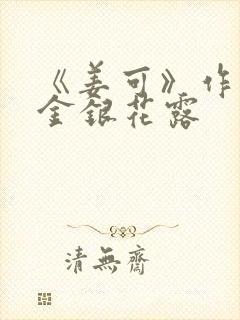 《姜可》作
金银花露
清無齋